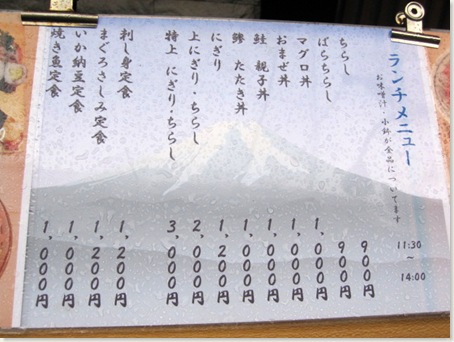 ランチメニュー
お味噌汁・小鉢が全品についてます
11:30
～
14:00
ちらし 900円
ばらちらし 900円
マグロ丼 1,000円
おまぜ丼 1,000円
鮭 親子丼 1,000円
鯵 たたき丼 1,000円
にぎり 1,200円
上にぎり・ちらし 2,000円
特上 にぎり・ちらし 3,000円
刺し身定食 1,200円
まぐろさしみ定食 1,200円
いか納豆定食 1,000円
焼き魚定食 1,000円